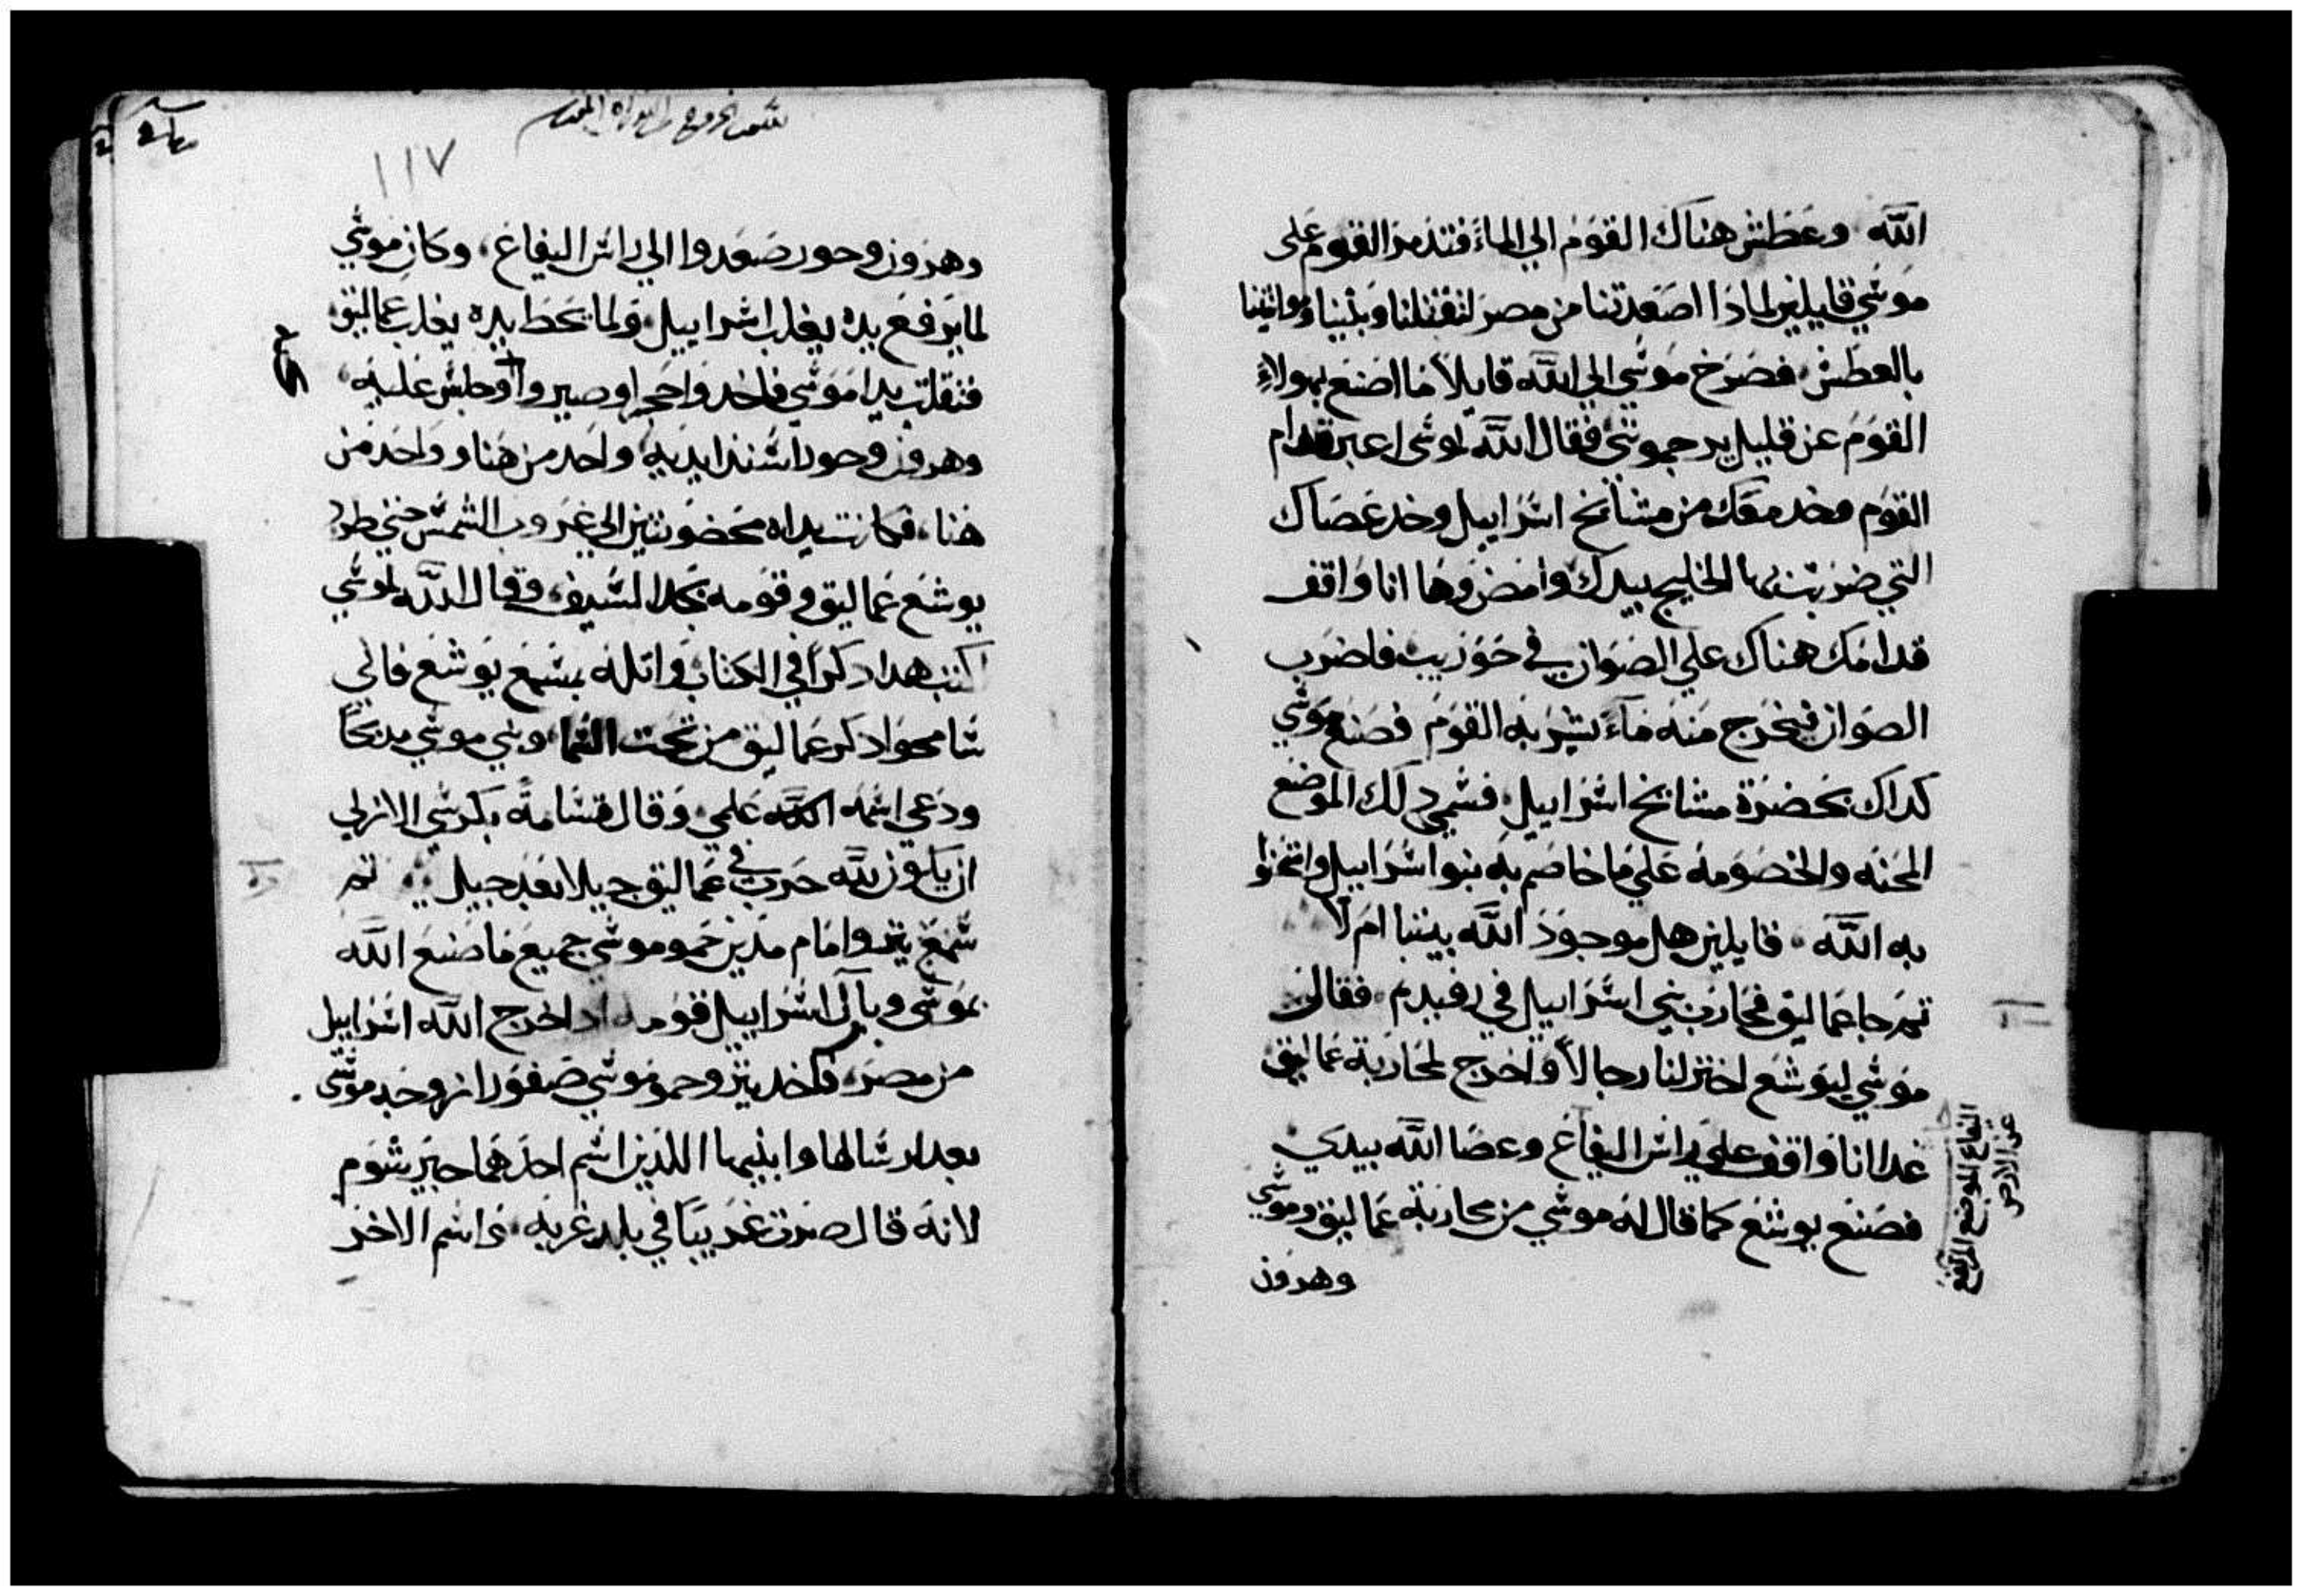 الله وعطش هناك القوم الي الماء فتدمر القوم على
موسي قايلين لمادا اصعدتنا من مصر لتقتلنا وبنينا ومواشينا
بالعطش فصرخ موسي الي الله قايلاً ما اصنع بهولاءِ
القوم عن قليل يرجموني فقال الله لموسى اعبر قدام
القوم وخد معك من مشايخ اسراييل وخد عصاك
التي ضربت بها الخليج بيدك وامض وها انا واقف
قدامك هناك علي الصوان في حوزيب فاضرب
الصوان فيخرج منه ماءً يشربه القوم فصنع موسي
كداك بحضرة مشايخ اسراييل فسمي دلك الموضع
المحنه والخصومه علي ما خاصم به بنوا اسراييل وامتحنوا
به الله قايلين هل موجود الله بيننا ام لا
تم جا عماليق فحارب بني اسراييل في رفيدم فقال
موسي ليوشع اختر لنا رجالاً واخرج لمحاربة عماليق
غدا انا واقف علي راس اليفاع وعصا الله بيدي
فصنع يوشع كما قال له موسي من محاربة عماليق وموسي
وهرون
اليفاع الموضع المرتفع
عن الارض
١١٧
وهرون وحور صعدوا الي راس اليفاع وكان موسي
لما يرفع يده يغلب اسراييل ولما يحط يده يغلب عماليق
فتقلت يدا موسي فاخدوا حجراً وصيروا وجلس عليه
وهرون وحور اسندا يديه واحد من هنا وواحد من
هنا فكانت يداه محضونتين الي غروب الشمس حتي طرد
يوشع عماليق وقومه بحد السيف وقال الله لموسي
اكتب هدا دكراً في الكتاب واتله بسمع يوشع فاني
سامحوا دكر عماليق من تحت السما وبني موسي مدبحاً
ودعي اسمه الله علمي وقال قسامة بكرسي الازلي
ان يكون لله حرب في عماليق جيلا بعد جيل تم
سمع يترو امام مدين حمو موسي جميع ما صنع الله
بموسى وبآل اسراييل قومه اد اخرج الله اسراييل
من مصر فاخد يترو حمو موسي صفورا زوجة موسى
بعد ارسالها وابنيها اللدين اسم احدهما جيرشوم
لانه قال صرت غريباً في بلد غربه واسم الاخر